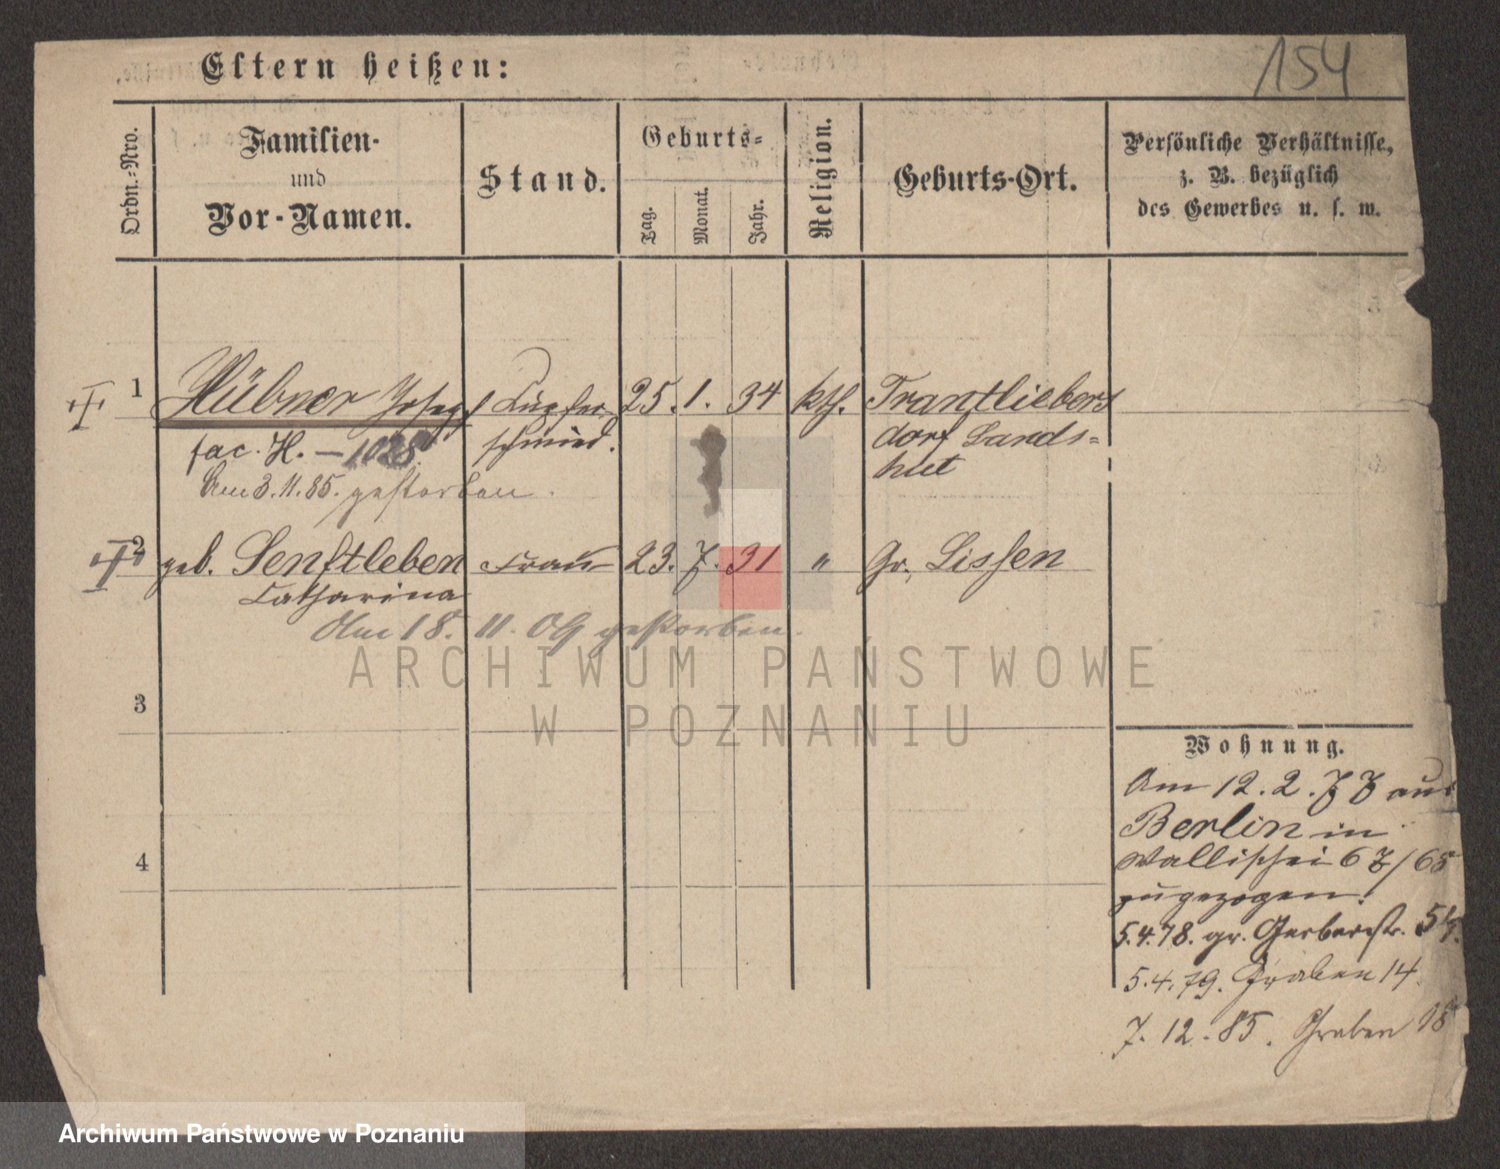 154
Eltern heißen:
Ordn.-Nro.
Familien-
und
Vor-Namen.
Stand.
Geburts-
Tag.
Monat.
Jahr.
Religion.
Geburts-Ort.
Persönliche Verhältnisse,
z. B. bezüglich
des Gewerbes u. s. w.
1 Hübner Joseph Kupfer- 25. 1. 34 kth. Trautliebers
schmied. dorf Lands-
hut
fac. H. – 1028.
Am 3.11.85. gestorben.
2 geb. Senftleben Frau 23. 7. 31 " Gr. Lissen
Catharina
Am 18. 11. 09 gestorben.
3
4
Wohnung.
Am 12. 2. 77 aus
Berlin in
Wallischei 67/65
zugezogen.
5.4.78. gr. Gerberstr.
5.4.79. Graben 14.
7. 12. 85. Graben 18
ARCHIWUM PAŃSTWOWE
W POZNANIU
Archiwum Państwowe w Poznaniu